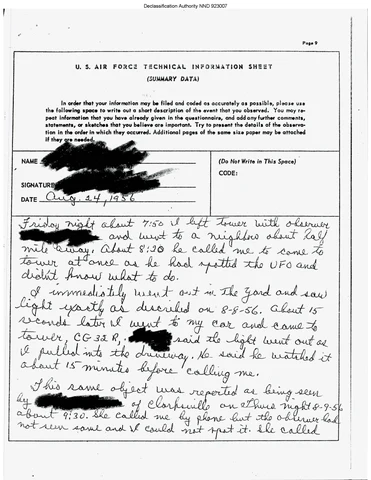 Declassification Authority NND 923007
Page 9
U. S. AIR FORCE TECHNICAL INFORMATION SHEET
(SUMMARY DATA)
In order that your information may be filed and coded as accurately as possible, please use
the following space to write out a short description of the event that you observed. You may re-
peat information that you have already given in the questionnaire, and add any further comments,
statements, or sketches that you believe are important. Try to present the details of the observa-
tion in the order in which they occurred. Additional pages of the same size paper may be attached
if they are needed.
NAME
(Do Not Write in This Space)
CODE:
SIGNATURE
DATE Aug. 24, 1956
Friday night about 7:50 I left tower with observer
and went to a neighbor about half
mile away. About 8:20 he called me to come to
tower at once as he had spotted the UFO and
didn't know what to do.
I immediately went out in the yard and saw
light exactly as described on 8-8-56. About 15
seconds later I went to my car and came to
tower, CG 32 R, said the light went out as
I pulled into the driveway. He said he watched it
about 15 minutes before calling me.
This same object was reported as being seen
by of Clarksville on Thurs night 8-9-56
about 9:30. She called me by phone but the observer had
not seen same and I could not spot it. She called